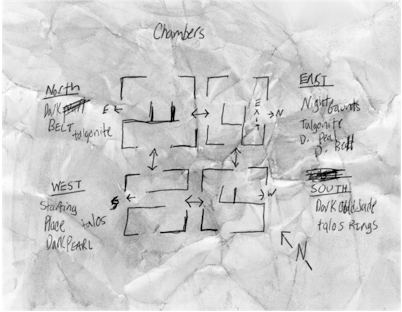 Chambers
North
Dark
BELT talgonite
EAST
Nightgaunts
Talgonite
D. Pearl
D. Belt
E
E
N
WEST
Starting
Place talos
Dark PEARL
S
W
SOUTH
Dark Jade
talos Rings
N